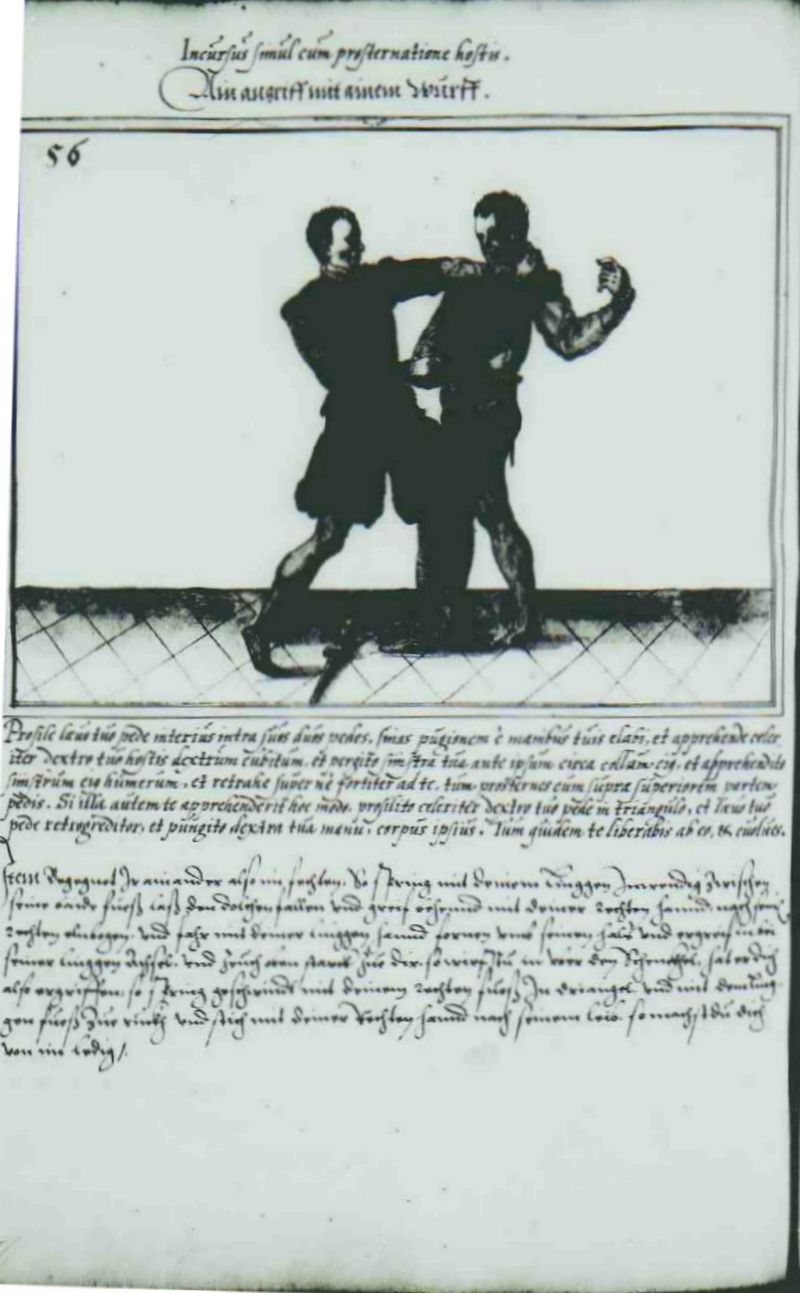 Incursus simul cum prosternatione hostis.
Ain angriff mit ainem Wurff.
56
Prosile læuo tuo pede interius intra suos duos pedes, sinas pugionem è manibus tuis elabi, et apprehende celer
iter dextro tuo hostis dextrum cubitum, et pergito sinistra tua ante ipsum circa collum eiq, et apprehendito
sinistrum eiq humerum, et retrahe supernè fortiter ad te, tum prosternes eum supra superiorem partem
pedis. Si illa autem te apprehenderit hoc modo, prosilito celeriter dextro tuo pede in triangulo, et læuo tuo
pede retrogreditor, et pungito dextra tua manu, corpus ipsius. Tum quidem te liberabis ab eo, & euolues.
Item Begegnet Ir ainander also im fechten, So spring mit deinem Linggen Inwendig zwischen
seine baide fuess lass den dolchen fallen vnd greif behennd mit deiner rechten hannd nach seinem
rechten elnbogen, vnd fahr mit deiner linggen hannd fornen vmb seinen hals vnd ergreif in bei
seiner linggen Achsel, vnd zeuch oben starck zue dir, so wirfstu in vber den Schenckhel, hat er dich
also ergriffen, so spring geschwindt mit deinem rechten fuoss In driangel vnd mit dem Ling
gen fuess zue ruckh vnd stich mit deiner Rechten hannd nach seinem leib so machstdu dich
von im ledig /.